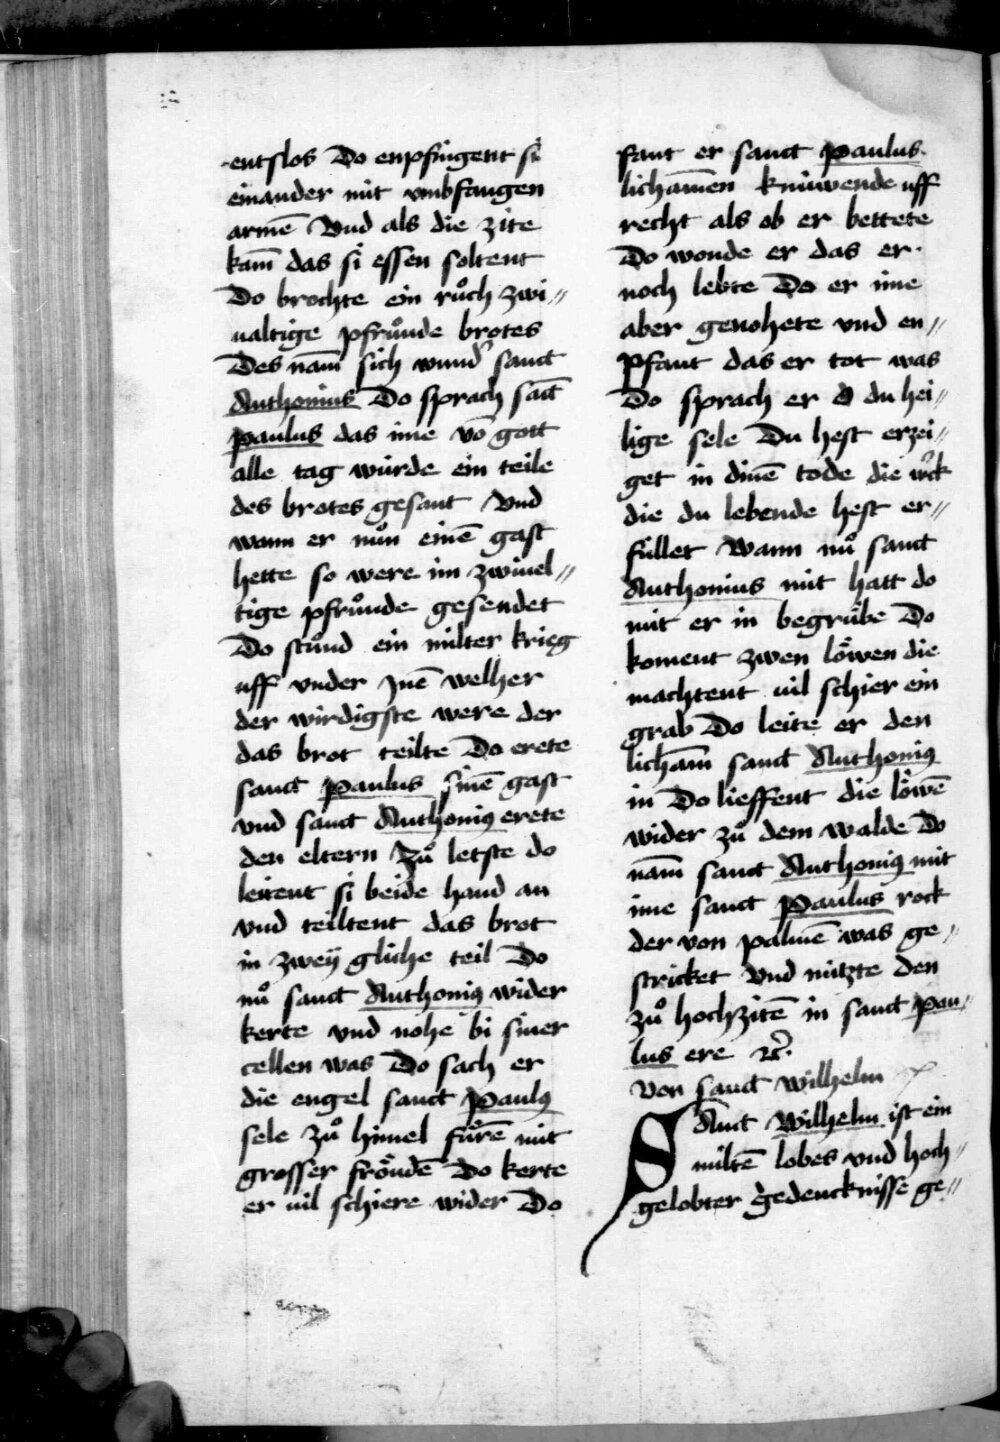 entslos Do enpfingent si
einander mit vmbfangen
armē Vnd als die zite
kam̄ das si essen soltent
Do brochte ein růch zwi//
ualtige pfrůnde brotes
Des nam̄ sich wund' sanct
Anthonius Do sprach sāct
paulus das ime vō gott
alle tag wurde ein teile
des brotes gesant Vnd
wann er nůn einē gast
hette so were im zwiuel//
tige pfrůnde gesendet
Do stůnd ein milter krieg
uff vnder Jnē welher
der wirdigste were der
das brot teilte Do erete
sanct Paulus sinē gast
vnd sanct Anthoniꝰ erete
den eltern Zů letste do
leitent si beide hand an
vnd teiltent das brot
in zweÿ gliche teil Do
nů sanct Anthoniꝰ wider
kerte vnd nohe bi siner
cellen was Do sach er
die engel sanct Paulꝰ
sele zů himel fůrē mit
grosser frőudē Do kerte
er uil schiere wider Do
fant er sanct paulus.
lichamen knuwende uff
recht als ob er bettete
Do wonde er das er.
noch lebte Do er ime
aber genohete vnd en//
Pfant das er tot was
Do sprach er O du hei//
lige sele Du hest erzei//
get in dinē tode die w'ck
die du lebende hest er//
füllet Wann nů sanct
Anthonius nüt hatt do
mit er in begrůbe Do
koment zwen löwen die
machtent uil schier ein
grab Do leite er den
licham̄ sanct Anthoniꝰ
in Do lieffent die löwē
wider zů dem walde Do
nam̄ sanct Anthoniꝰ mit
ime sanct Paulus rock
der von palmē was ge//
stricket Vnd nützte den
zů hochzitē in sanct Pau//
lus ere ꝛc.
Von sanct Wilhelm
SAnct Wilhelm ist ein
miltē lobes vnd hoch//
gelobter gedencknisse ge//